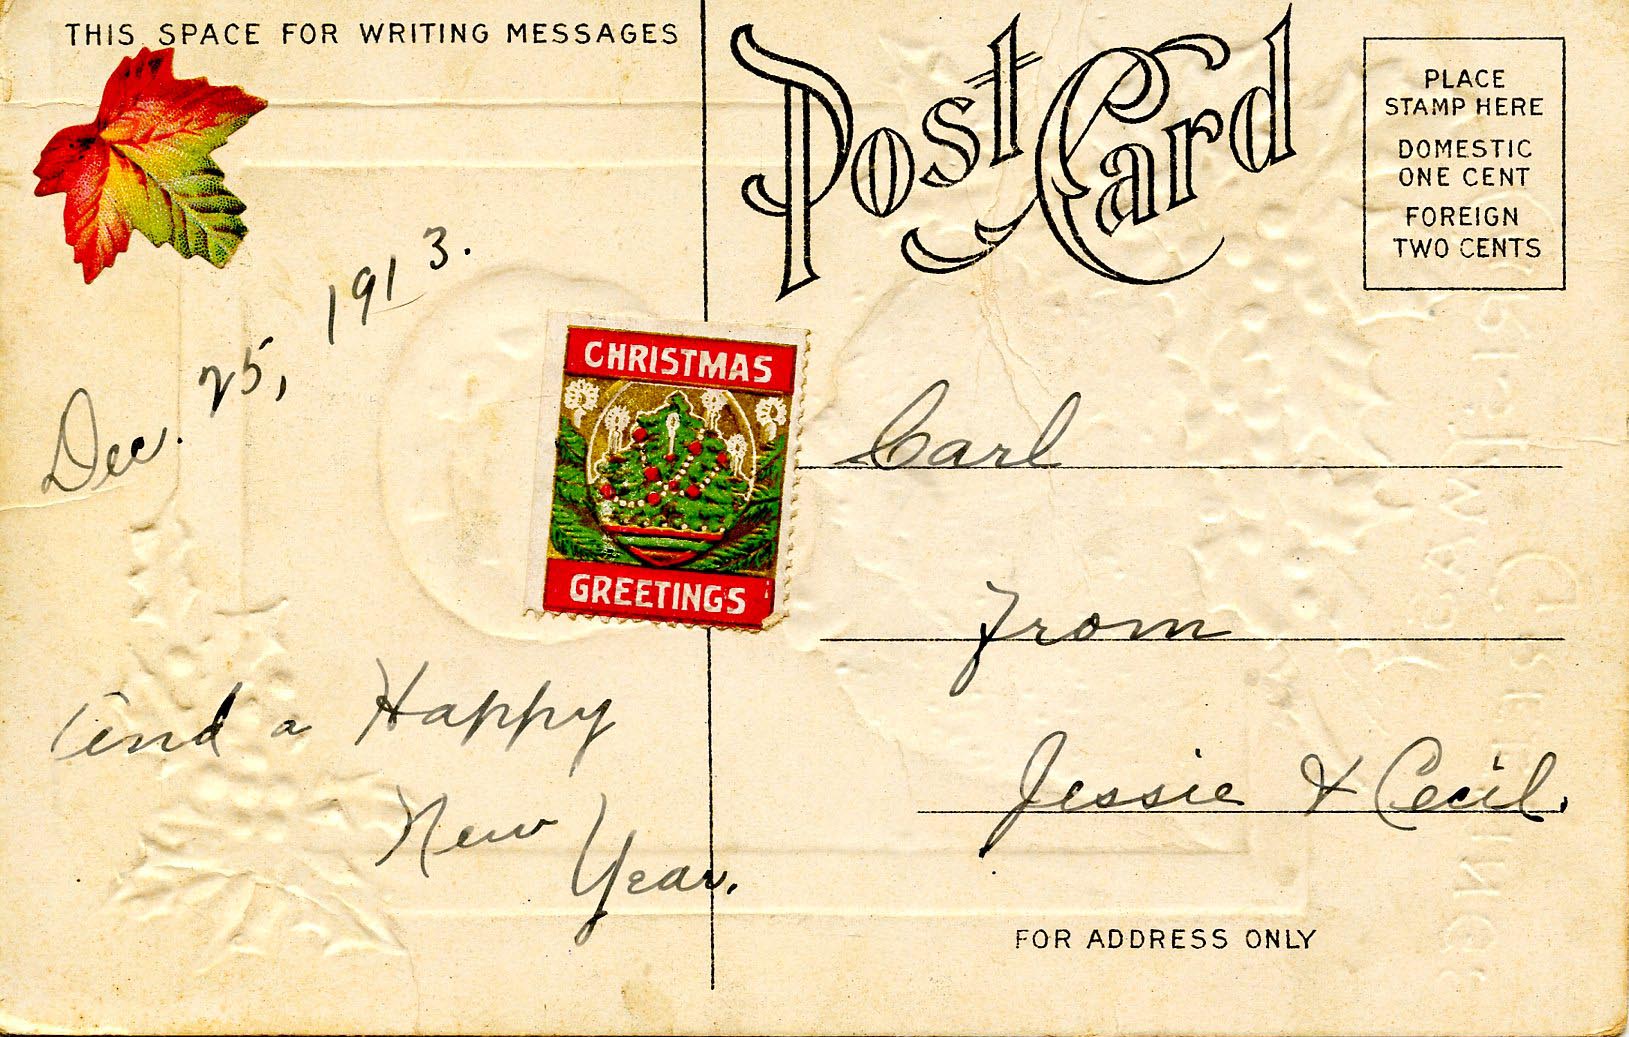 THIS SPACE FOR WRITING MESSAGES
Post Card
PLACE
STAMP HERE
DOMESTIC
ONE CENT
FOREIGN
TWO CENTS
Dec. 25, 1913.
CHRISTMAS
GREETINGS
and a Happy
New
Year.
Carl
From
Jessie & Cecil.
FOR ADDRESS ONLY